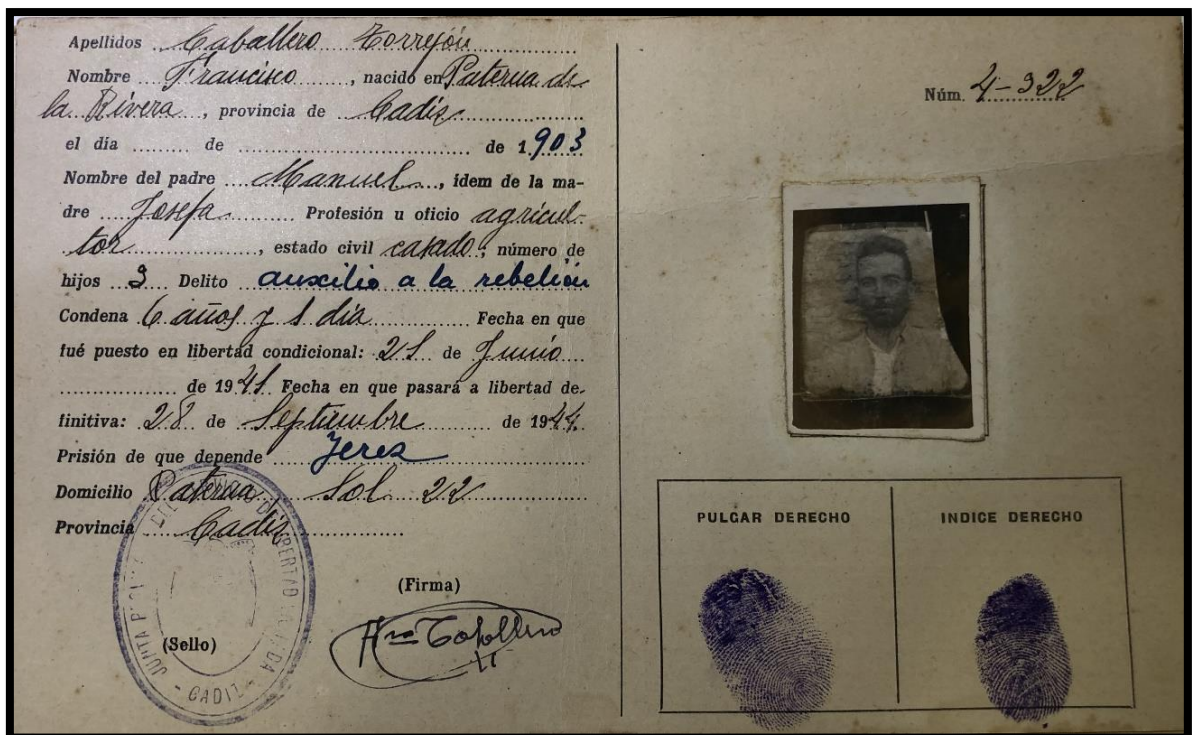 Apellidos Caballero Torrejón
Nombre Francisco, nacido en Paterna de
la Rivera, provincia de Cadiz
el día ........ de ........ de 1.903
Nombre del padre Manuel, idem de la ma-
dre Josefa Profesión u oficio agricul-
tor, estado civil casado, número de
hijos 3 Delito auxilio a la rebelión
Condena 6 años y 1 día Fecha en que
fué puesto en libertad condicional: 21 de Junio
de 1941 Fecha en que pasará a libertad de-
finitiva: 28 de Septiembre de 1944.
Prisión de que depende Jerez
Domicilio Paterna Sol 22
Provincia Cadiz
(Firma)
(Sello)
Frco Caballero
JUNTA LIBERTAD
- CADIZ -
Núm. 4-322
PULGAR DERECHO
INDICE DERECHO